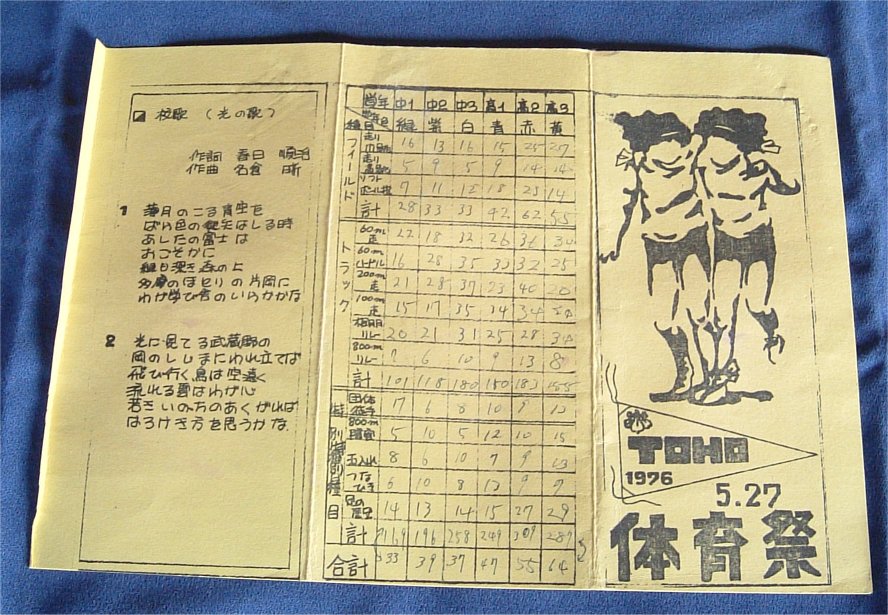 校歌 (光の歌)
作詞 春日 順治
作曲 名倉 晣
1 薄月のこる青空を
ばら色の はしる時
あしたの富士は
おごそかに
緑 深き森の上
多摩のほとりの片岡に
わが学び舎のいらかかな
2 光に見てる武蔵野の
岡のしじまにわれ立てば
飛び行く鳥は空遠く
流れる雲はわが心
若きいのちのあくがれば
はろけき方を思うかな
学年 中1 中2 中3 高1 高2 高3
種目 緑 紫 白 青 赤 黄
フィールド
走り巾跳 16 13 16 15 25 27
走り高跳 5 9 5 9 14 14
ソフトボール投 7 11 12 18 23 14
計 28 33 33 42 62 55
トラック
60m走 22 18 32 26 36 30
60mハードル 16 28 35 33 32 25
200m走 21 28 37 23 40 20
100m走 15 17 35 34 34
リレー 20 21 31 25 28
800mリレー 7 6 10 9 13 8
計 101 118 180 150 183
特別種目
団体徒手 17 6 8 10 9
800m 5 10 5 12 10 15
玉入れ 8 6 10 7 9 13
つなひき 6 10 8 13 9 9
足の 14 13 14 15 27 29
計 196 258 249 309 287
合計 39 37 47 55 64
TOHO
1976
5.27
体育祭